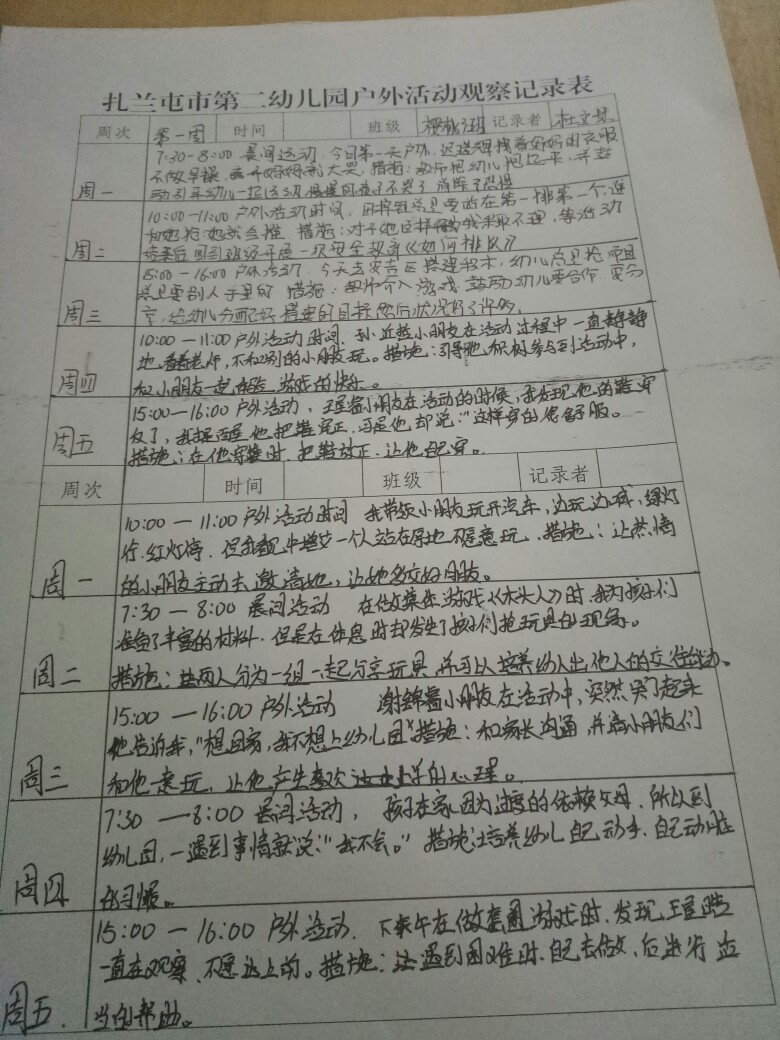 扎兰屯市第二幼儿园户外活动观察记录表
周次 第一周 时间 班级 樱桃班 记录者
周一
7:30-8:00 晨间活动,今日第一天户外,
不做早操,离开妈妈就大哭,措施:教师把幼儿抱起来,并
动引导幼儿一起活动
周二
10:00-11:00 户外活动时间,总是要站在第一排第一个,谁
和她抢她就会推 措施:对于她这样的我采取不理,等活动
结束后回到班级开展一次安全教育《如何排队》
周三
15:00-16:00 户外活动,今天去安吉区搭建积木,幼儿总是抢而且
总是要别人手里的 措施:教师介入游戏,鼓励幼儿要合作,要分
享,给幼儿分配好搭建的目标然后状况好了许多。
周四
10:00-11:00 户外活动时间,小朋友在活动过程中一直静静
地看着老师,不和别的小朋友玩。措施:引导他积极参与到活动中,
和小朋友一起体验游戏的快乐。
周五
15:00-16:00 户外活动,小朋友在活动的时候,我发现他的鞋穿
反了,我提醒他把鞋穿正,可是他却说:“这样穿的很舒服。
措施:在他穿鞋时,把鞋放正,让他自己穿。
周次 时间 班级 记录者
周一
10:00-11:00 户外活动时间 我带领小朋友玩开汽车,边玩边喊,绿灯
行,红灯停,一个人站在原地不愿意玩,措施:让热情
的小朋友主动去邀请她,让她多交好朋友。
周二
7:30-8:00 晨间活动 在做集体游戏《木头人》时,我为孩子们
准备了丰富的材料,但是在休息时却发生了孩子们抢玩具的现象。
措施:两人分为一组一起分享玩具,并可以培养幼儿与他人的交往能力。
周三
15:00-16:00 户外活动 谢锦小朋友在活动中,突然哭了起来
他告诉我,“想回家,我不想上幼儿园”措施:和家长沟通,并请小朋友们
和他一起玩,让他产生喜欢上学的心理。
周四
7:30-8:00 晨间活动,孩子在家因为过度的依赖父母,所以到
幼儿园,一遇到事情就说:“我不会。”措施:培养幼儿自己动手,自己动脑
的习惯。
周五.
15:00-16:00 户外活动. 下午在做套圈游戏时,发现王
一直在观察,不愿意上前。措施:让遇到困难时,自己去做,后进行适
当的帮助。